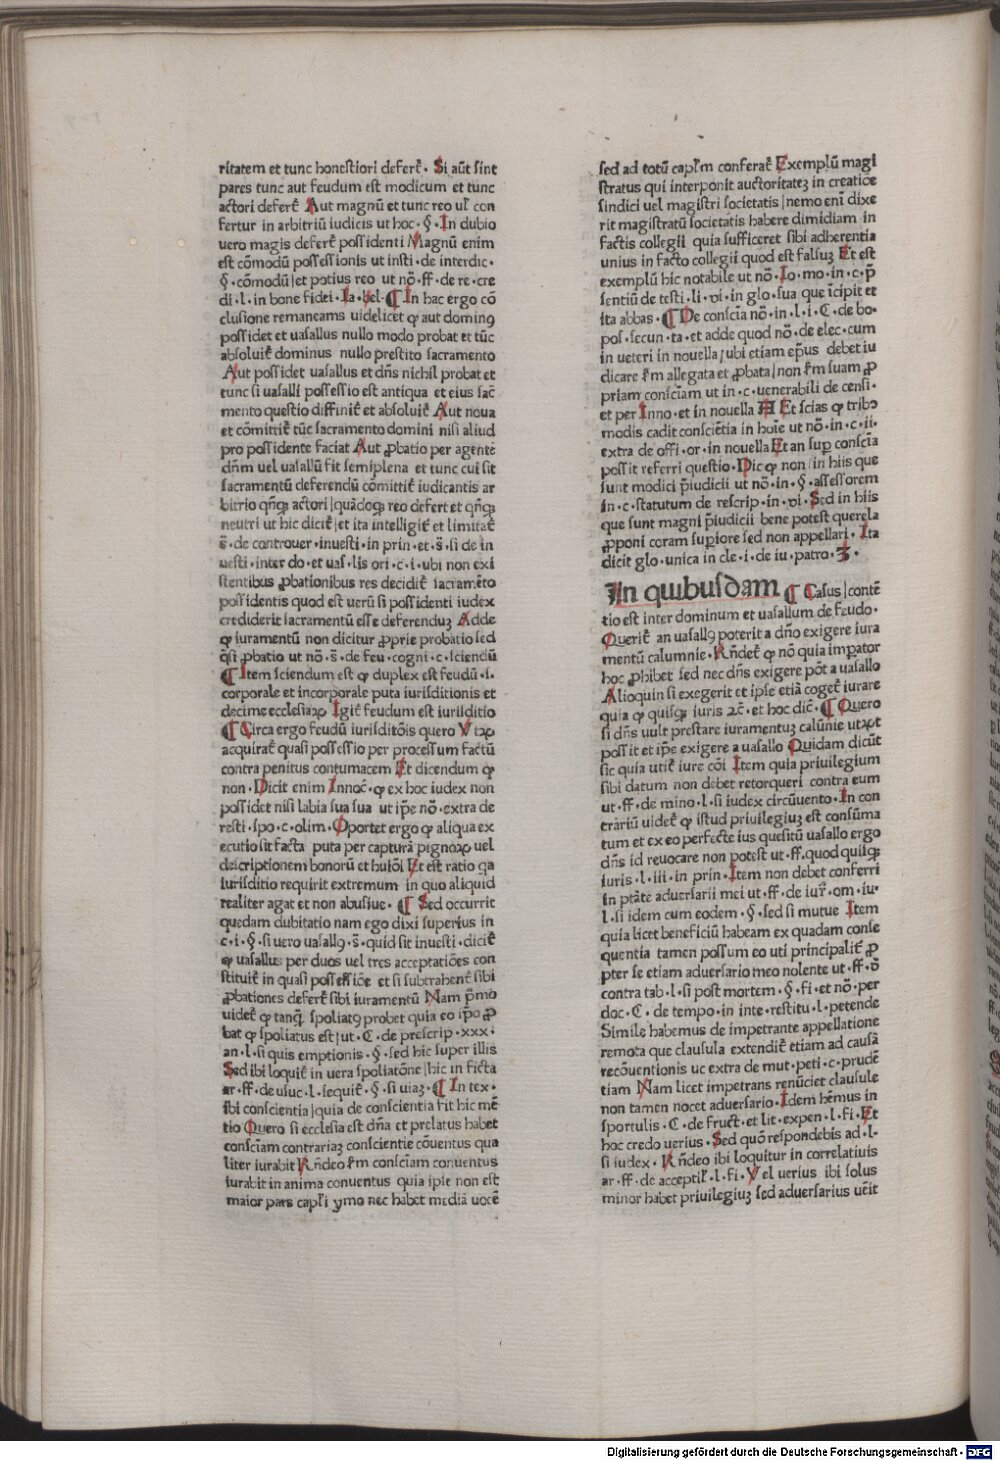 ritatem et tunc honestiori defert̄. Si aūt sint
pares tunc aut feudum est modicum et tunc
actori defert̄ Aut magnū et tunc reo ul̄ con
fertur in arbitriū iudicis ut hoc. §. In dubio
uero magis defert̄ possidenti Magnū enim
est cōmodū possessionis ut insti. de interdic.
§. cōmodū / et potius reo ut nō. ff. de re. cre
di. l. in bone fidei. Ia. bel. ¶ In hac ergo cō
clusione remaneams uidelicet ꝙ aut dominꝯ
possidet et uasallus nullo modo probat et tūc
absoluit̄ dominus nullo prestito sacramento
Aut possidet uasallus et dn̄s nichil probat et
tunc si uasalli possessio est antiqua et eius sac̄
mento questio diffinit̄ et absoluit̄ Aut noua
et cōmittit̄ tūc sacramento domini nisi aliud
pro possidente faciat Aut ꝓbatio per agentē
dn̄m uel uasallū fit semiplena et tunc cui sit
sacramentū deferendū cōmittit̄ iudicantis ar
bitrio qn̄qꝫ actori / quādoqꝫ reo defert et qn̄qꝫ
neutri ut hic dicit̄ / et ita intelligit̄ et limitat̄
s̄. de controuer. inuesti. in prin. et. s̄. si de in
uesti. inter do. et uas. lis ori. c. i. ubi non exi
stentibus ꝓbationibus res decidit̄ sacramēto
possidentis quod est uerū si possidenti iudex
crediderit sacramentū esse deferenduꝫ Adde
ꝙ iuramentū non dicitur ꝓprie probatio sed
q̄si ꝓbatio ut nō. s̄. de feu. cogni. c. sciendū
¶ Item sciendum est ꝙ duplex est feudū. s.
corporale et incorporale puta iurisditionis et
decime ecclesiaꝝ Igit̄ feudum est iurisditio
¶ Circa ergo feudū iurisditōis quero Vtꝝ
acquirat̄ quasi possessio per processum factū
contra penitus contumacem Et dicendum ꝙ
non. Dicit enim Innoc̄. ꝙ ex hoc iudex non
possidet nisi labia sua sua ut ip̄e nō. extra de
resti. spo. c. olim. Oportet ergo ꝙ aliqua ex
ecutio sit facta puta per capturā pignoꝝ uel
descriptionem bonorū et huiōi Et est ratio qa
iurisditio requirit extremum in quo aliquid
realiter agat et non abusiue. ¶ Sed occurrit
quedam dubitatio nam ego dixi superius in
c. i. §. si uero uasallꝯ. s̄. quid sit inuesti. dicit̄
ꝙ uasallus per duos uel tres acceptatiōes con
stituit̄ in quasi possessiōe et si subtrahent̄ sibi
ꝓbationes defert̄ sibi iuramentū Nam p̄mo
uidet̄ ꝙ tanq̄ spoliatꝯ probet quia eo ip̄o ꝓ
bat ꝙ spoliatus est / ut. C. de prescrip. xxx.
an. l. si quis emptionis. §. sed hic super illis
Sed ibi loquit̄ in uera spoliatōne / hic in ficta
ar. ff. de usuc. l. sequit̄. §. si uiaꝫ. ¶ In tex.
ibi conscientia / quia de conscientia fit hic mē
tio Quero si ecclesia est dn̄a et prelatus habet
consciam contrariaꝫ conscientie cōuentus qua
liter iurabit Rn̄deo s̄m consciam conuentus
iurabit in anima conuentus quia ipse non est
maior pars capl̄i ymo nec habet mediā uocē
sed ad totū capl̄m conferat̄ Exemplū magi
stratus qui interponit auctoritateꝫ in creatiōe
sindici uel magistri societatis / nemo eni dixe
rit magistratū societatis habere dimidiam in
factis collegii quia sufficeret sibi adherentia
unius in facto collegii quod est falsuꝫ Et est
exemplū hic notabile ut nō. Io. mo. in. c. p̄
sentiū de testi. li. vi. in glo. sua que īcipit et
ita abbas. ¶ De conscīa nō. in. l. i. C. de bo.
pos. secun. ta. et adde quod nō. de elec. cum
in ueteri in nouella / ubi etiam ep̄us debet iu
dicare s̄m allegata et ꝓbata / non s̄m suam ꝓ
priam consciam ut in. c. uenerabili de censi.
et per Inno. et in nouella Et scias ꝙ tribꝯ
modis cadit consciētia in hoīe ut nō. in. c. ii.
extra de offi. or. in nouella Et an sup̄ conscīa
possit referri questio. Dic ꝙ non in hiis que
sunt modici p̄iudicii ut nō. in. §. assessorem
in. c. statutum de rescrip. in. vi. Sed in hiis
que sunt magni p̄iudicii bene potest querela
ꝓponi coram supiore sed non appellari. Ita
dicit glo. unica in cle. i. de iu. patro. Ʒ.
In quibusdam ¶ Casus / contē
tio est inter dominum et uasallum de feudo.
Querit̄ an uasallꝯ poterit a dn̄o exigere iura
mentū calumnie. Rn̄det̄ ꝙ nō quia imperator
hoc ꝓhibet sed nec dn̄s exigere pōt a uasallo
Alioquin si exegerit et ipse etiā coget̄ iurare
quia ꝙ quisqꝫ iuris ⁊c̄. et hoc dic̄. ¶ Quero
si dn̄s uult prestare iuramentuꝫ calūnie utꝝ
possit et ip̄e exigere a uasallo Quidam dicūt
sic quia utit̄ iure cōi Item quia priuilegium
sibi datum non debet retorqueri contra eum
ut. ff. de mino. l. si iudex circūuento. In con
trariū uidet̄ ꝙ istud priuilegiuꝫ est consūma
tum et ex eo perfecte ius quesitū uasallo ergo
dn̄s id reuocare non potest ut. ff. quod quisqꝫ
iuris. l. iii. in prin. Item non debet conferri
in ptāte aduersarii mei ut. ff. de iur̄. om. iu.
l. si idem cum eodem. §. sed si mutue Item
quia licet beneficiū habeam ex quadam conse
quentia tamen possum eo uti principalit̄ ꝓ
pter se etiam aduersario meo nolente ut. ff. ō
contra tab. l. si post mortem. §. fi. et nō. per
doc. C. de tempo. in inte. restitu. l. petende
Simile habemus de impetrante appellatione
remota que clausula extendit̄ etiam ad causā
recōuentionis uc extra de mut. peti. c. prudē
tiam Nam licet impetrans renūciet clausule
non tamen nocet aduersario. Idem hēmus in
sportulis. C. de fruct̄. et lit. expen. l. fi. Et
hoc credo uerius. Sed quō respondebis ad. l.
si iudex. Rn̄deo ibi loquitur in correlatiuis
ar. ff. de acceptil̄. l. fi. Vel uerius ibi solus
minor habet priuilegiuꝫ sed aduersarius uēit
Digitalisierung gefördert durch die Deutsche Forschungsgemeinschaft - DFG